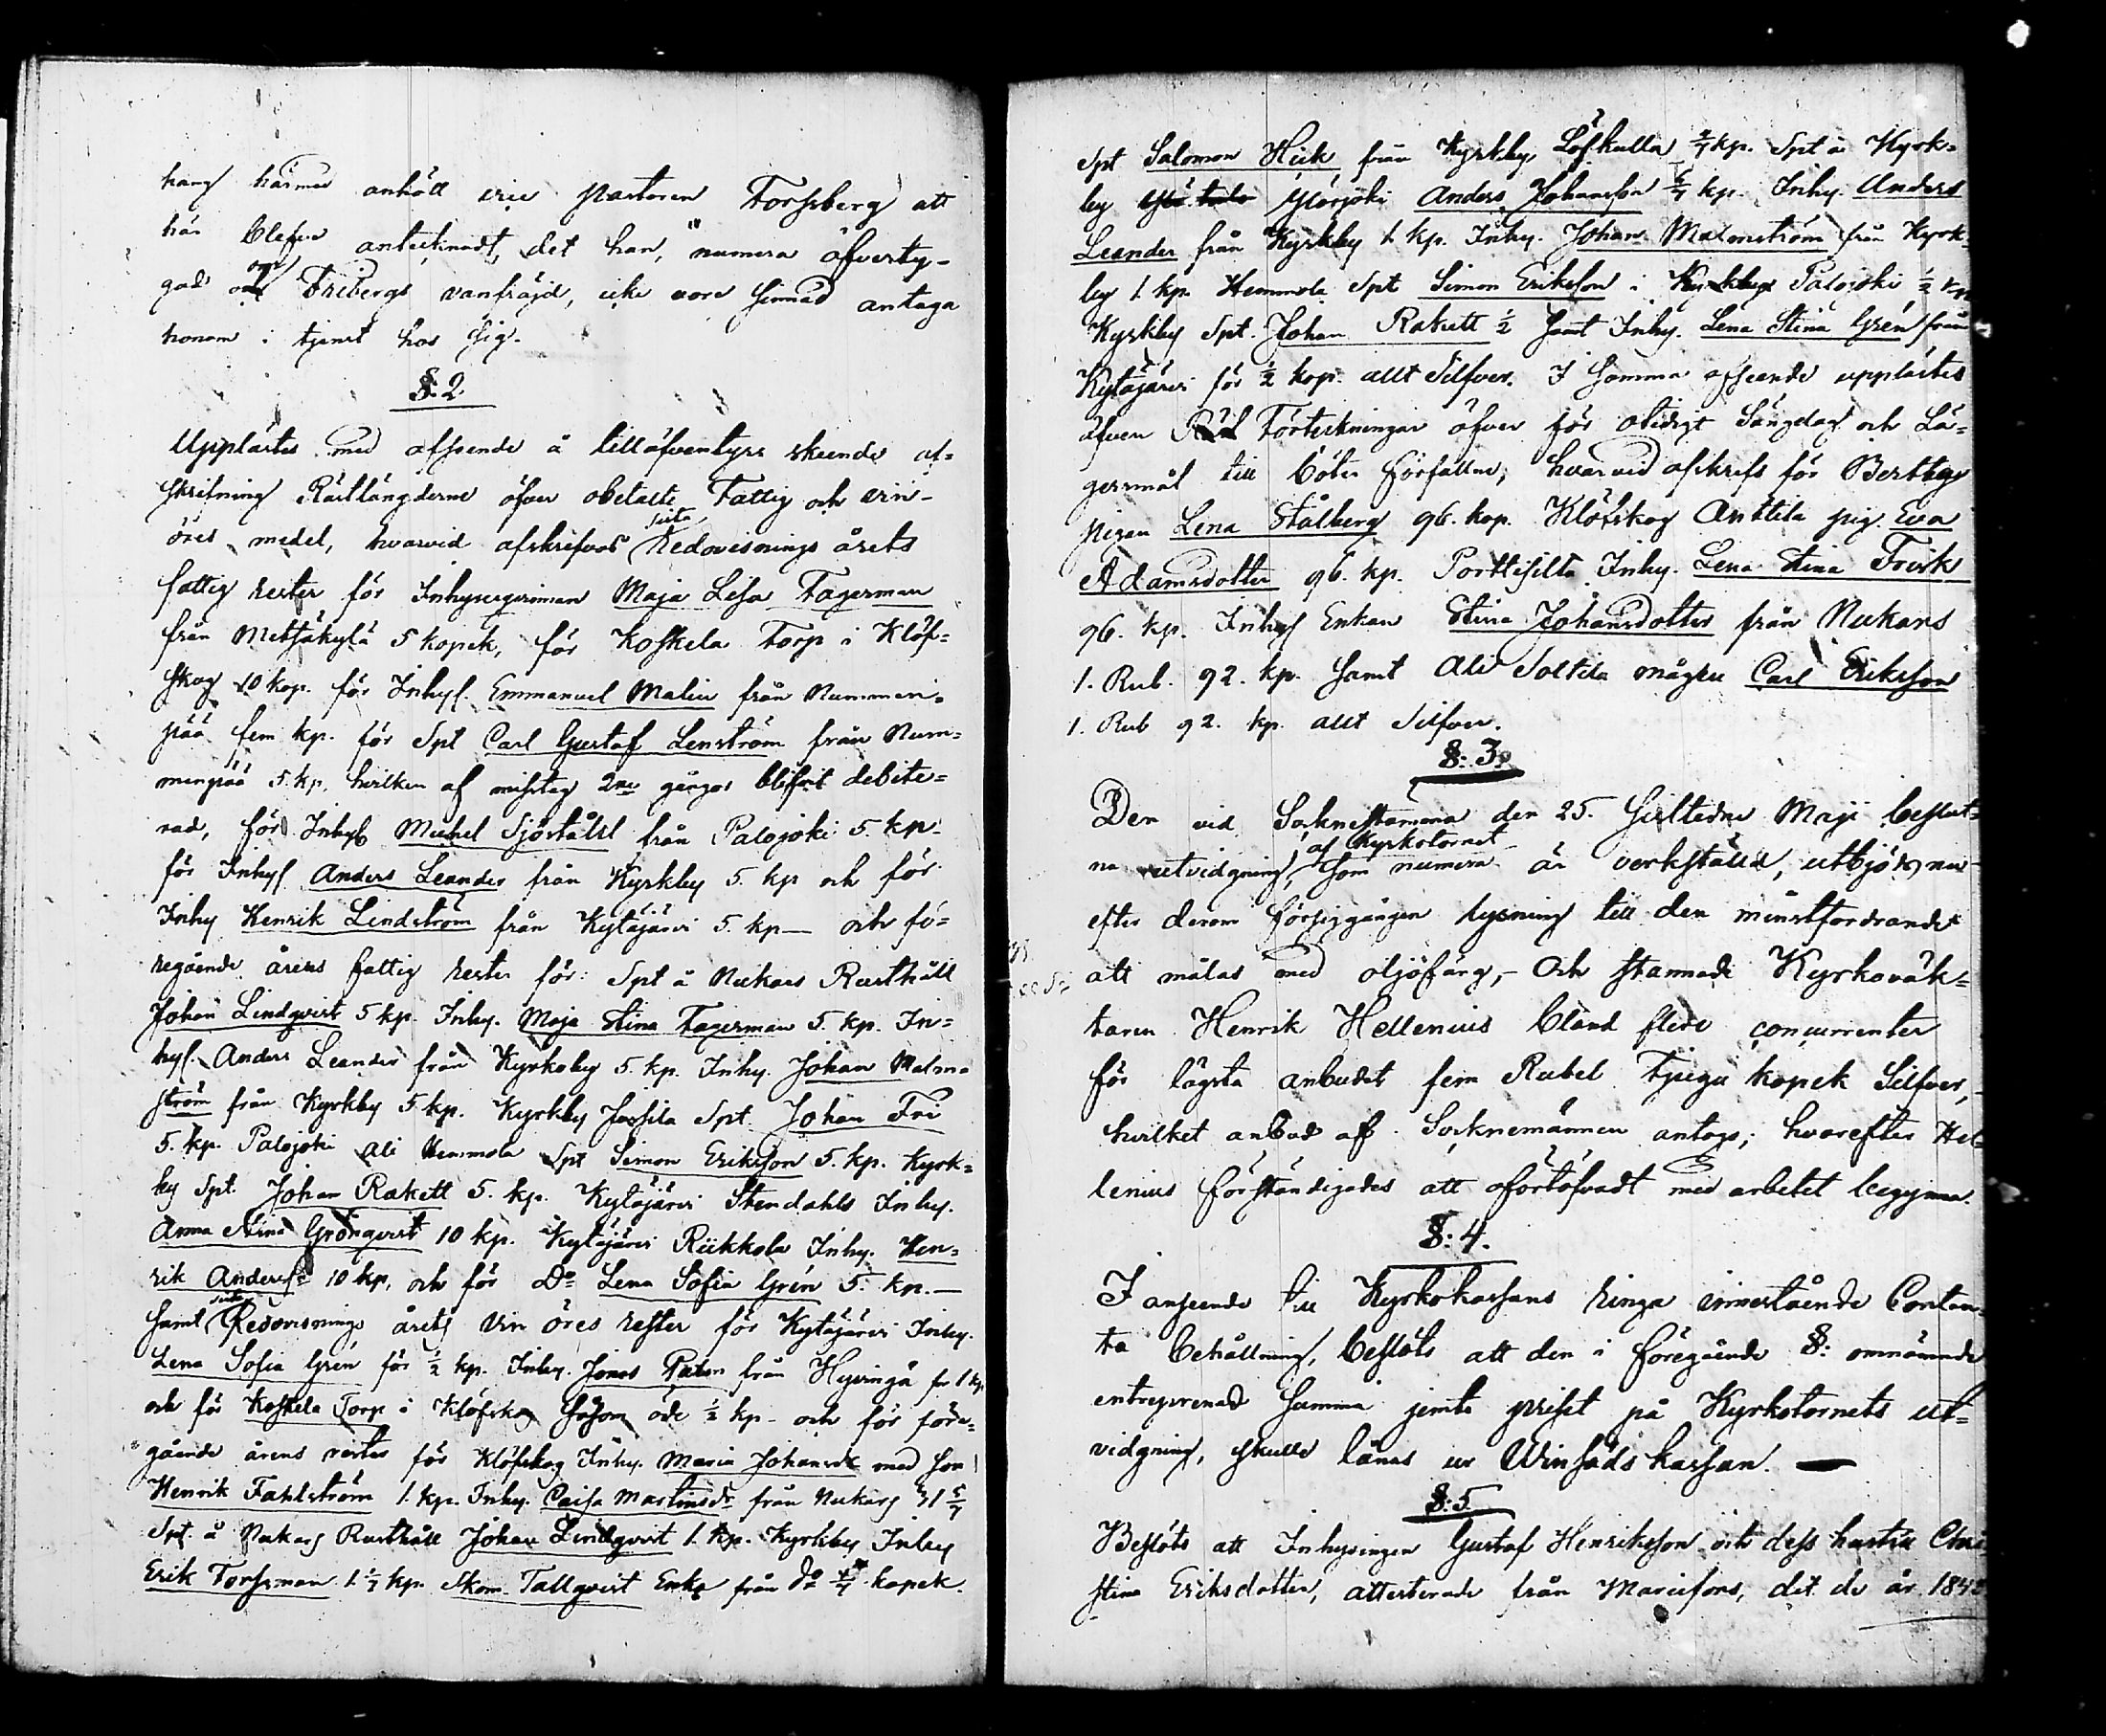 hang härmed anhöll vice Pastoren Forssberg att
här blefve antecknadt, det han, numera öfverty-
gad om Fribergs vanfräjd, icke vore sinnad antaga
honom i tjenst hos sig.
§: 2
Upplästes med afseende å tilläfventyrs skeende af-
skrifning Restlängderne öfver obetalte Fattig och vin-
öres medel, hvarvid afskrefvos sista Redovisnings årets
fattig rester för Inhysesqvinnan Maja Lisa Fagerman
från Metsäkylä 5 kopek, för Koskela Torp i Klöf-
skog 10 kop. för Inhys. Emmanuel Malin från Nummen-
pää fem kp. för Spt Carl Gustaf Lenström från Num-
menpää 5. kp, hvilken af misstag 2ne gånger blifvit debite-
rad, för Inhys Michel Sjöståhl från Palojoki 5. kp
för Inhys Anders Leander från Kyrkby 5. kp och för
Inhy Henrik Lindström från Kytäjärvi 5. kp — och fö-
regående årens fattig rester för: Spt å Nukars Rusthåll
Johan Lindqvist 5 kp. Inhy. Maja Stina Fagerman 5. kp. In-
hys. Anders Leander från Kyrkoby 5. kp. Inhy. Johan Malm-
ström från Kyrkby 5 kp. Kyrkby Jussila Spt. Johan Fri
5. kp. Palojoki Ali Hemmola Spt Simon Eriksson 5. kp. Kyrk-
by Spt. Johan Rakett 5. kp. Kytäjärvi Stendahls Inhy.
Anna Stina Grönqvist 10 kp. Kytäjärvi Riikkola Inhy. Hen-
rik Anderss: 10 kp, och för Do Lena Sofia Grén 5. kp. —
samt sista Redovisnings årets Vin öres rester för Kytäjärvi Inhy.
Lena Sofia Grén för ½ kp. Inhy. Jonas från Hyvingä för 1 kp
och för Koskela Torp i Klöfskog såsom öde ½ kp - och för före-
gående årens rester för Klöfskog Inhy. Maria Johansd: med son
Henrik Fahlström 1. kp. Inhy. Caisa Martinsdr från Nukars
Spt. å Nukars Rusthåll Johan Lindqvist 1. kp. Kyrkby Inhy
Erik Forssman 1. kp. Skom. Tallqvist Enka från do kopek.
Spt Salomon Hick från Kyrkby, Löfkulla kp. Spt å Kyrk-
by Ylörjöki Anders Johansson kp. Inhy. Anders
Leander från Kyrkby 1. kp. Inhy. Johan Malmström från Kyrk-
by 1. kp. Hemmola Spt Simon Eriksson i Kyrkby Palojoki ½ kp
Kyrkby Spt. Johan Rakett ½ samt Inhy. Lena Stina Grén från
Kytäjärvi för ½ kop. allt Silfver. I samma afseende upplästes
äfven Förteckningar öfver för otidigt Sängelag och Lä-
gersmål till böter förfallne; hvarvid afskrefs för Berttby
pigan Lena Stålberg 96. kop. Klöfskog Anttila pig. Eva
Adamsdotter 96. kp. Porttisilta Inhy. Lena Stina Frisk
96. kp. Inhys Enkan Stina Johansdotter från Nukars
1. Rub. 92. kp. samt Ali Soltila mågen Carl Eriksson
1. Rub 92. kp. allt Silfver.
§: 3.
Den vid Sockenstämma den 25. sistledne Maji beslut-
na utvidgning, af Kyrkotornet som numera är verkställd, utbjöds nu
efter derom försiggången lysning till den minstfordrande
att målas med oljefärg, - Och stannade Kyrkovak-
taren Henrik Hellenius bland flere concurrenter
för lägsta anbudet fem Rubel tjugu kopek Silfver,
hvilket anbud af Socknemännen antogs; hvarefter Hel-
lenius förständigades att ofortöfvadt med arbetet begynna.
§: 4.
I anseende till Kyrkokassans ringa innestående Contan-
ta behållning, beslöts att den i föregående §: omnämnde
entreprenad summa jemte priset på Kyrkotornets ut-
vidgning, skulle lånas ur Winsäds kassan. —
§: 5
Beslöts att Inhysingen Gustaf Henriksson och dess hustru Chri-
stina Eriksdotter, attesterade från Mariefors, dit de år 1842